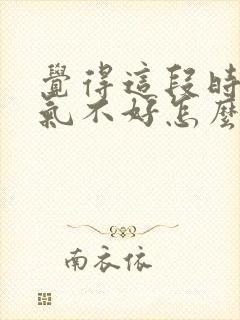 覺得這段時
氣不好怎麼
南衣依